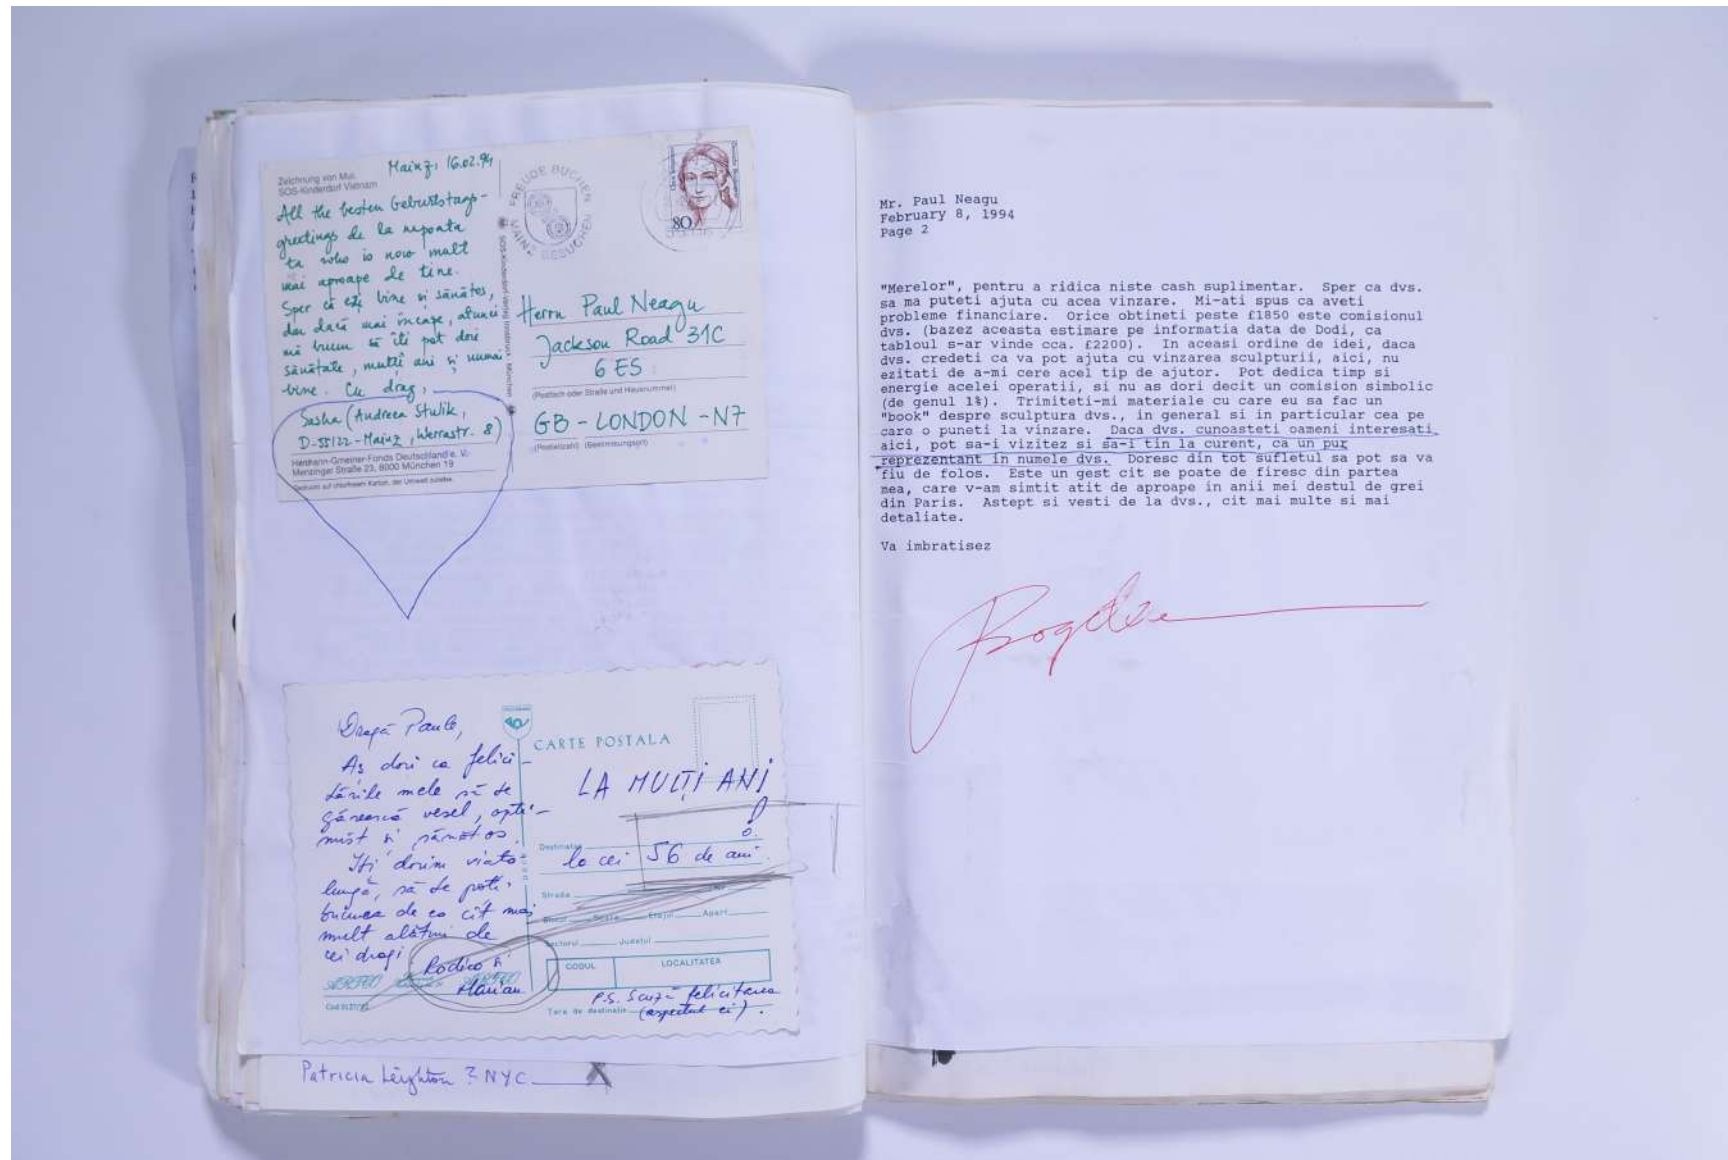 Mainz, 16.02.94
Zeichnung von Mui,
SOS-Kinderdorf Vietnam
All the besten Geburtstags-
greetings de la nepoata
ta who is now mult
mai aproape de tine.
Sper că ești bine și sănătos,
dar dacă mai încape, atunci
mă bucur să îți pot dori
sănătate, mulți ani și numai
bine. Cu drag,
Sasha (Andreea Stulik,
D-55122-Mainz, Werrastr. 8)
Hermann-Gmeiner-Fonds Deutschland e. V.
Menzinger Straße 23, 8000 München 19
Gedruckt auf chlorfreiem Karton, der Umwelt zuliebe.
SOS-Kinderdorf-Verlag Innsbruck · München
FREUDE BUCHEN
MAINZ BESUCHEN
80
Herrn Paul Neagu
Jackson Road 31C
6 ES
(Postfach oder Straße und Hausnummer)
GB - LONDON - N7
(Postleitzahl) (Bestimmungsort)
Dragă Paule,
Aș dori ca felici-
tările mele să te
găsească vesel, opti-
mist și sănătos.
Iți dorim viață
lungă, să te poți
bucura de ea cît mai
mult alături de
cei dragi
Rodica și
Marian
ARTCO ARTCO
CARTE POSTALA
LA MULȚI ANI
!
Destinatar
la cei 56 de ani.
Strada
Blocul Scara Etajul Apart.
Sectorul Județul
CODUL LOCALITATEA
P.S. Scuză felicitarea
Țara de destinație (aspectul ei).
Patricia Leighton ? NYC X
Mr. Paul Neagu
February 8, 1994
Page 2
"Merelor", pentru a ridica niste cash suplimentar. Sper ca dvs.
sa ma puteti ajuta cu acea vinzare. Mi-ati spus ca aveti
probleme financiare. Orice obtineti peste £1850 este comisionul
dvs. (bazez aceasta estimare pe informatia data de Dodi, ca
tabloul s-ar vinde cca. £2200). In aceasi ordine de idei, daca
dvs. credeti ca va pot ajuta cu vinzarea sculpturii, aici, nu
ezitati de a-mi cere acel tip de ajutor. Pot dedica timp si
energie acelei operatii, si nu as dori decit un comision simbolic
(de genul 1%). Trimiteti-mi materiale cu care eu sa fac un
"book" despre sculptura dvs., in general si in particular cea pe
care o puneti la vinzare. Daca dvs. cunoasteti oameni interesati
aici, pot sa-i vizitez si sa-i tin la curent, ca un pur
reprezentant in numele dvs. Doresc din tot sufletul sa pot sa va
fiu de folos. Este un gest cit se poate de firesc din partea
mea, care v-am simtit atit de aproape in anii mei destul de grei
din Paris. Astept si vesti de la dvs., cit mai multe si mai
detaliate.
Va imbratisez
Bogdan